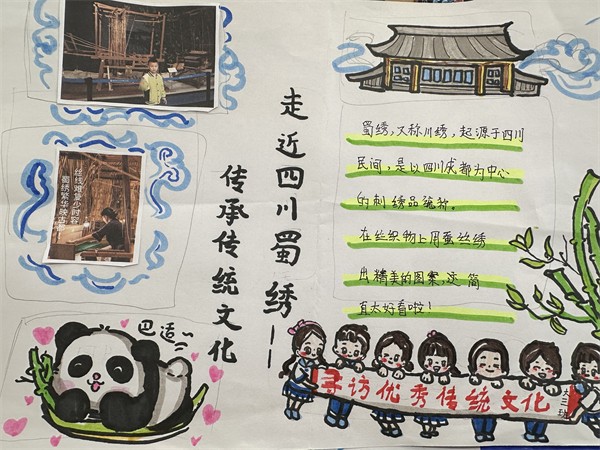 走近四川蜀绣——
传承传统文化
丝线难繁少时容
蜀绣繁华映古今
蜀绣，又称川绣，起源于四川
民间，是以四川成都为中心
的刺绣品总称。
在丝织物上用蚕丝线绣
出精美的图案，这简
直太好看啦！
巴适
寻访优秀传统文化
大三班